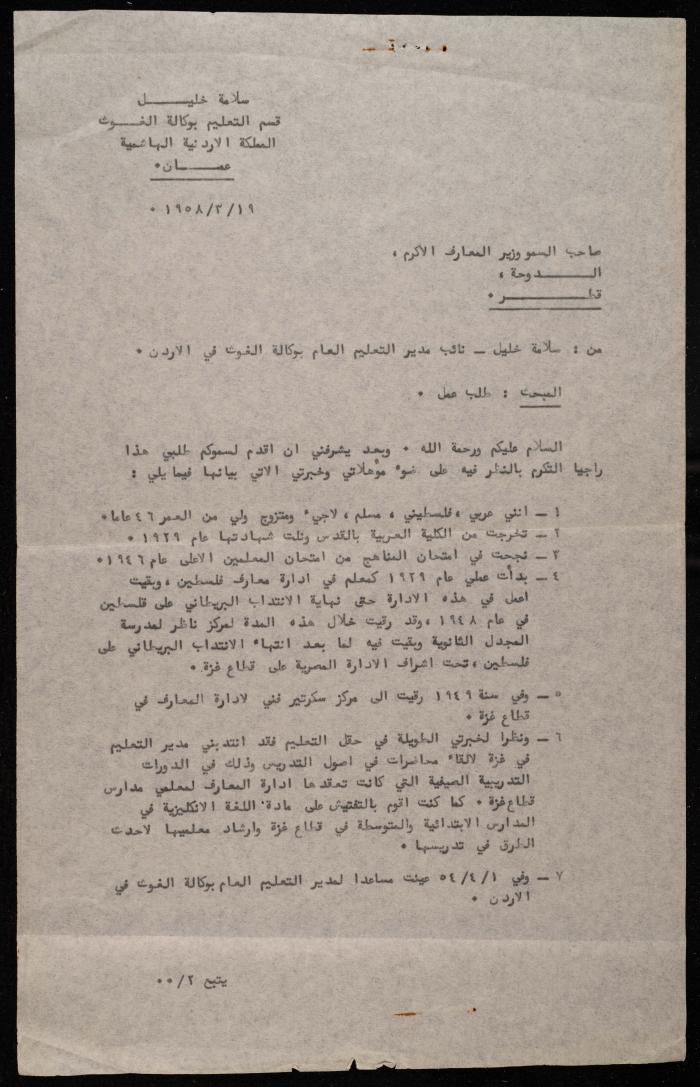 سلامة خليــــــل
قسم التعليم بوكالة الغـــوث
المملكة الاردنية الهاشمية
عمـــــــان •
١٩/٣/١٩٥٨ •
صاحب السمو وزير المعارف الاكرم ،
الـــــــدوحة ،
قطــــــــــــر •
من : سلامة خليل ــ نائب مدير التعليم العام بوكالة الغوث في الاردن •
المبحث : طلب عمل •
السلام عليكم ورحمة الله • وبعد يشرفني ان اقدم لسموكم طلبي هذا
راجيا التكرم بالنظر فيه على ضوء مؤهلاتي وخبرتي الاتي بيانها فيما يلي :
١ ــ انني عربي ،فلسطيني ، مسلم ، لاجيء ومتزوج ولي من العمر ٤٦ عاما•
٢ ــ تخرجت من الكلية العربية بالقدس ونلت شهادتها عام ١٩٢٩ •
٣ ــ نجحت في امتحان المناهج من امتحان المعلمين الاعلى عام ١٩٤٦•
٤ ــ بدأت عملي عام ١٩٢٩ كمعلم في ادارة معارف فلسطين ،وبقيت
اعمل في هذه الادارة حتى نهاية الانتداب البريطاني على فلسطين
في عام ١٩٤٨ ،وقد رقيت خلال هذه المدة لمركز ناظر لمدرسة
المجدل الثانوية وبقيت فيه لما بعد انتهاء الانتداب البريطاني على
فلسطين ،تحت اشراف الادارة المصرية على قطاع غزة •
٥ ــ وفي سنة ١٩٤٩ رقيت الى مركز سكرتير فني لادارة المعارف في
قطاع غزة •
٦ ــ ونظرا لخبرتي الطويلة في حقل التعليم فقد انتدبني مدير التعليم
في غزة لالقاء محاضرات في اصول التدريس وذلك في الدورات
التدريبية الصيفية التي كانت تعقدها ادارة المعارف لمعلمي مدارس
قطاع غزة • كما كنت اقوم بالتفتيش على مادة اللغة الانكليزية في
المدارس الابتدائية والمتوسطة في قطاع غزة وارشاد معلميها لاحدث
الطرق في تدريسها •
٧ ــ وفي ٥٤/٤/١ عينت مساعدا لمدير التعليم العام بوكالة الغوث في
الاردن •
يتبع ٢/••